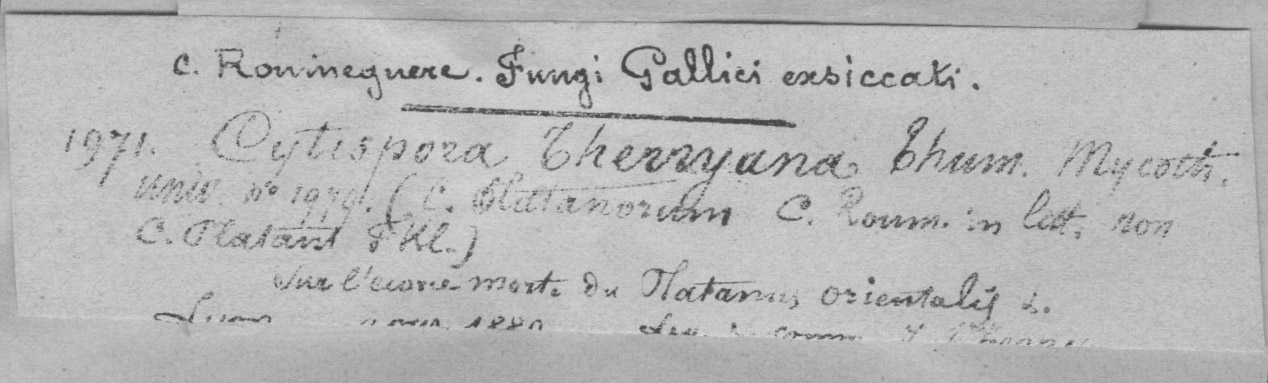 C. Roumeguere. Fungi Gallici exsiccati.
1971. Cytispora Therryana Thum. Mycoth.
univ. No 1979. (C. Platanorum C. Roum. in litt. non
C. Platani Fkl.)
Sur l'ecorce morte du Platanus orientalis L.
Lyon 1880